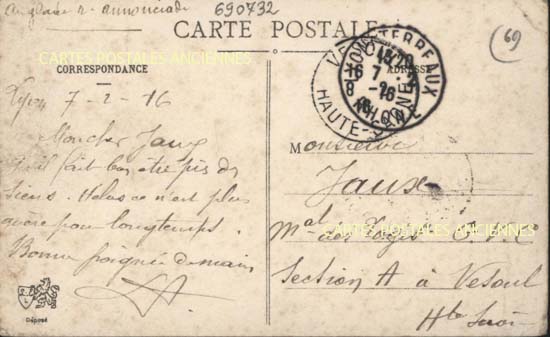 Anglade r. annonciade
690732
69
CARTE POSTALE
CARTES POSTALES ANCIENNES
CORRESPONDANCE
ADRESSE
LYON TERREAUX
RHONE
VESOUL
HAUTE-SAONE
Lyon 7-2-16
Mon cher Jaux
Qu'il fait bon être près des
siens. Hélas ce n'est plus
guère pour longtemps.
Bonne poignée de main
Monsieur
Jaux
Mal des Logis
CARTES POSTALES ANCIENNES
Section A à Vesoul
Hte Saône
Déposé